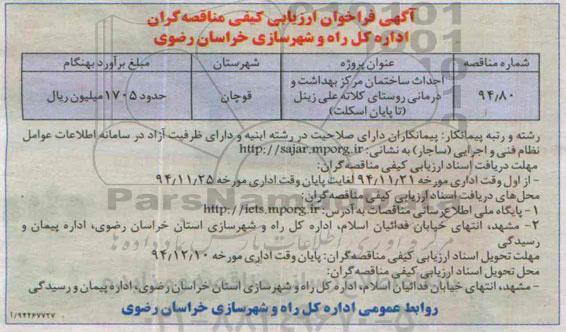 آگهی فراخوان ارزیابی کیفی مناقصه‌گران
اداره کل راه و شهرسازی خراسان رضوی
شماره مناقصه | عنوان پروژه | شهرستان | مبلغ برآورد بهنگام
۹۴٫۸۰ | احداث ساختمان مرکز بهداشت و درمانی روستای کلاته علی زینل (تا پایان اسکلت) | قوچان | حدود ۱۷۰۵ میلیون ریال
رشته و رتبه پیمانکار: پیمانکاران دارای صلاحیت در رشته ابنیه و دارای ظرفیت آزاد در سامانه اطلاعات عوامل
نظام فنی و اجرایی (ساجار) به نشانی: http://sajar.mporg.ir
مهلت دریافت اسناد ارزیابی کیفی مناقصه‌گران:
- از اول وقت اداری مورخه ۹۴٫۱۱٫۲۱ لغایت پایان وقت اداری مورخه ۹۴٫۱۱٫۲۵
محل‌های دریافت اسناد ارزیابی کیفی مناقصه‌گران:
۱- پایگاه ملی اطلاع‌رسانی مناقصات به آدرس: http://iets.mporg.ir
۲- مشهد، انتهای خیابان فدائیان اسلام، اداره کل راه و شهرسازی استان خراسان رضوی، اداره پیمان و
رسیدگی
مهلت تحویل اسناد ارزیابی کیفی مناقصه‌گران: پایان وقت اداری مورخه ۹۴٫۱۲٫۱۰
محل تحویل اسناد ارزیابی کیفی مناقصه‌گران:
- مشهد، انتهای خیابان فدائیان اسلام، اداره کل راه و شهرسازی استان خراسان رضوی، اداره پیمان و رسیدگی
روابط عمومی اداره کل راه و شهرسازی خراسان رضوی
۱/۹۴۲۶۷۷۲۷